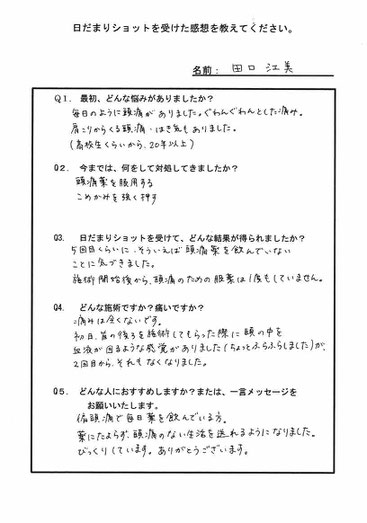 日だまりショットを受けた感想を教えてください。
名前： 田口 江美
Q1. 最初、どんな悩みがありましたか？
毎日のように頭痛がありました。ぐわんぐわんとした痛み。
肩こりからくる頭痛・はき気もありました。
(高校生くらいから、20年以上)
Q2. 今までは、何をして対処してきましたか？
頭痛薬を服用する
こめかみを強く押す
Q3. 日だまりショットを受けて、どんな結果が得られましたか？
5回目くらいに、そういえば頭痛薬を飲んでいない
ことに気づきました。
施術開始後から、頭痛のための服薬は1度もしていません。
Q4. どんな施術ですか？痛いですか？
痛みは全くないです。
初日、首の後ろを施術してもらった際に頭の中を
血液が回るような感覚がありました(ちょっとふらふらしました)が、
2回目から、それもなくなりました。
Q5. どんな人におすすめしますか？または、一言メッセージを
お願いいたします。
偏頭痛で毎日薬を飲んでいる方。
薬にたよらず、頭痛のない生活を送れるようになりました。
びっくりしています。ありがとうございます。